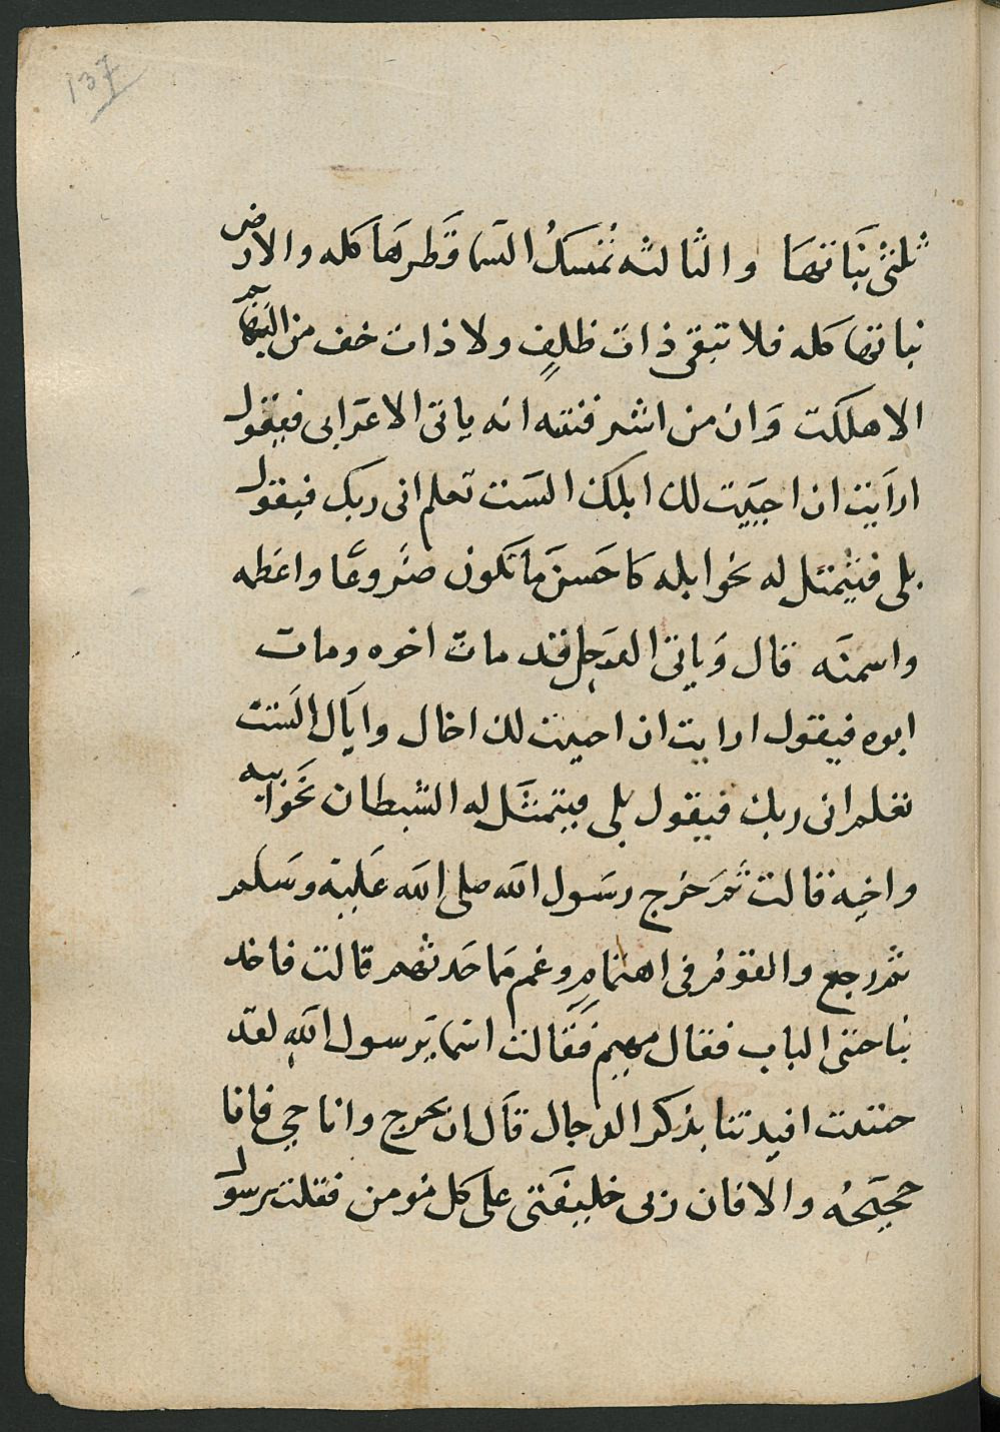 137
ثلثى نباتها والثالثه تمسك السما قطرها كله والارض
نباتها كله فلا تبقى ذات ظلف ولا ذات خف من البهايم
الا هلكت وان من اشر فتنته انه ياتى الاعرابى فيقول
ارايت ان احييت لك ابلك الست تعلم انى ربك فيقول
بلى فيتمثل له نحو ابله كاحسن ما تكون ضروعا واعظمه
واسمنه قال وياتى الرجل قد مات اخوه ومات
ابوه فيقول ارايت ان احييت لك اخاك واباك الست
تعلم انى ربك فيقول بلى فيتمثل له الشيطان نحو ابيه
واخيه قالت ثم خرج رسول الله صلى الله عليه وسلم
ثم رجع والقوم فى اهتمام وغم مما حدثهم قالت فاخذ
بناحتى الباب فقال مهيم فقالت اسما يرسول الله لقد
خلعت افيدتنا بذكر الدجال قال ان يخرج وانا حي فانا
حجيجه والا فان ربى خليفتى على كل مومن فقلت يرسول